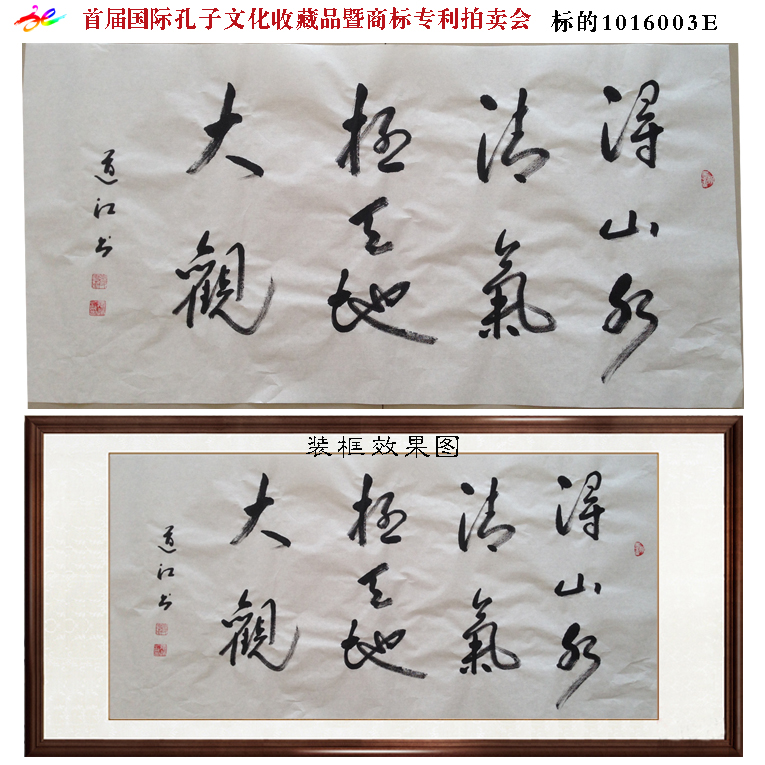 首届国际孔子文化收藏品暨商标专利拍卖会 标的1016003E
得山水
清氣
極天地
大觀
道江书
装框效果图
得山水
清氣
極天地
大觀
道江书